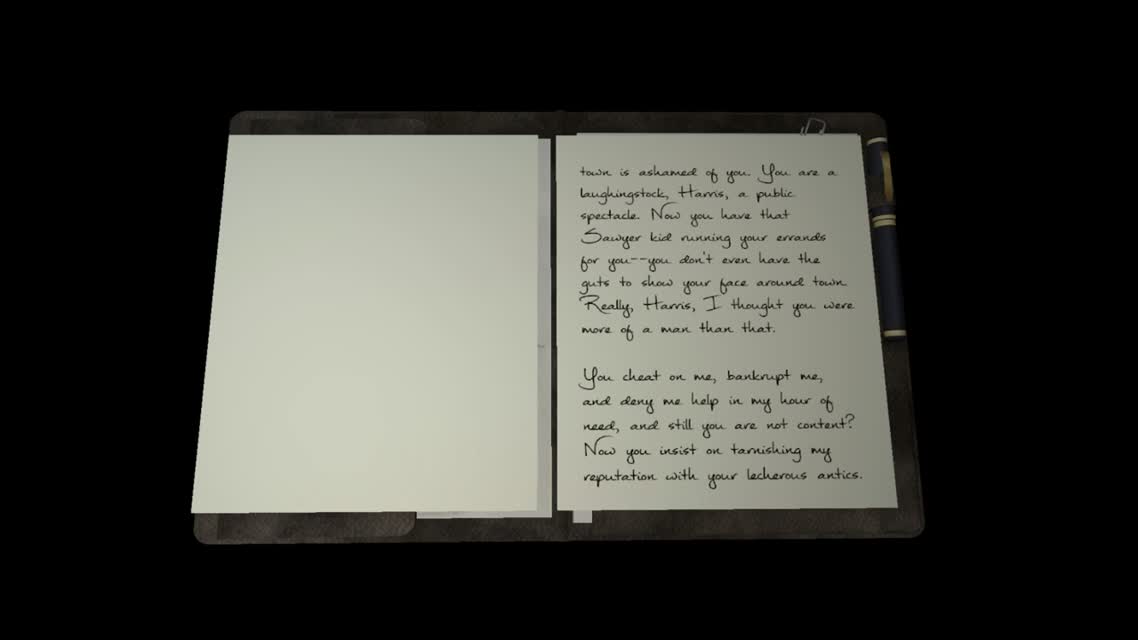 town is ashamed of you. You are a
laughingstock, Harris, a public
spectacle. Now you have that
Sawyer kid running your errands
for you--you don't even have the
guts to show your face around town.
Really, Harris, I thought you were
more of a man than that.
You cheat on me, bankrupt me,
and deny me help in my hour of
need, and still you are not content?
Now you insist on tarnishing my
reputation with your lecherous antics.